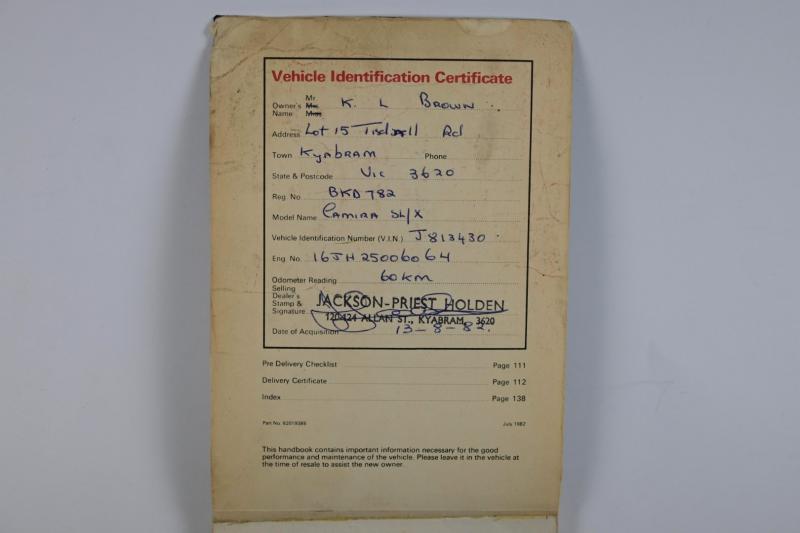 Vehicle Identification Certificate
Owner's Name Mr Mrs Miss K. L BROWN
Address Lot 15 Rd
Town KYABRAM Phone
State & Postcode VIC 3620
Reg. No. BKD 782
Model Name CAMIRA SL/X
Vehicle Identification Number (V.I.N.) J813430
Eng. No. 16JH25006064
Odometer Reading 60KM
Selling Dealer's Stamp & Signature JACKSON-PRIEST HOLDEN
ALLAN ST., KYABRAM, 3620
Date of Acquisition 13-8-82.
Pre Delivery Checklist Page 111
Delivery Certificate Page 112
Index Page 138
Part No. July 1982
This handbook contains important information necessary for the good
performance and maintenance of the vehicle. Please leave it in the vehicle at
the time of resale to assist the new owner.